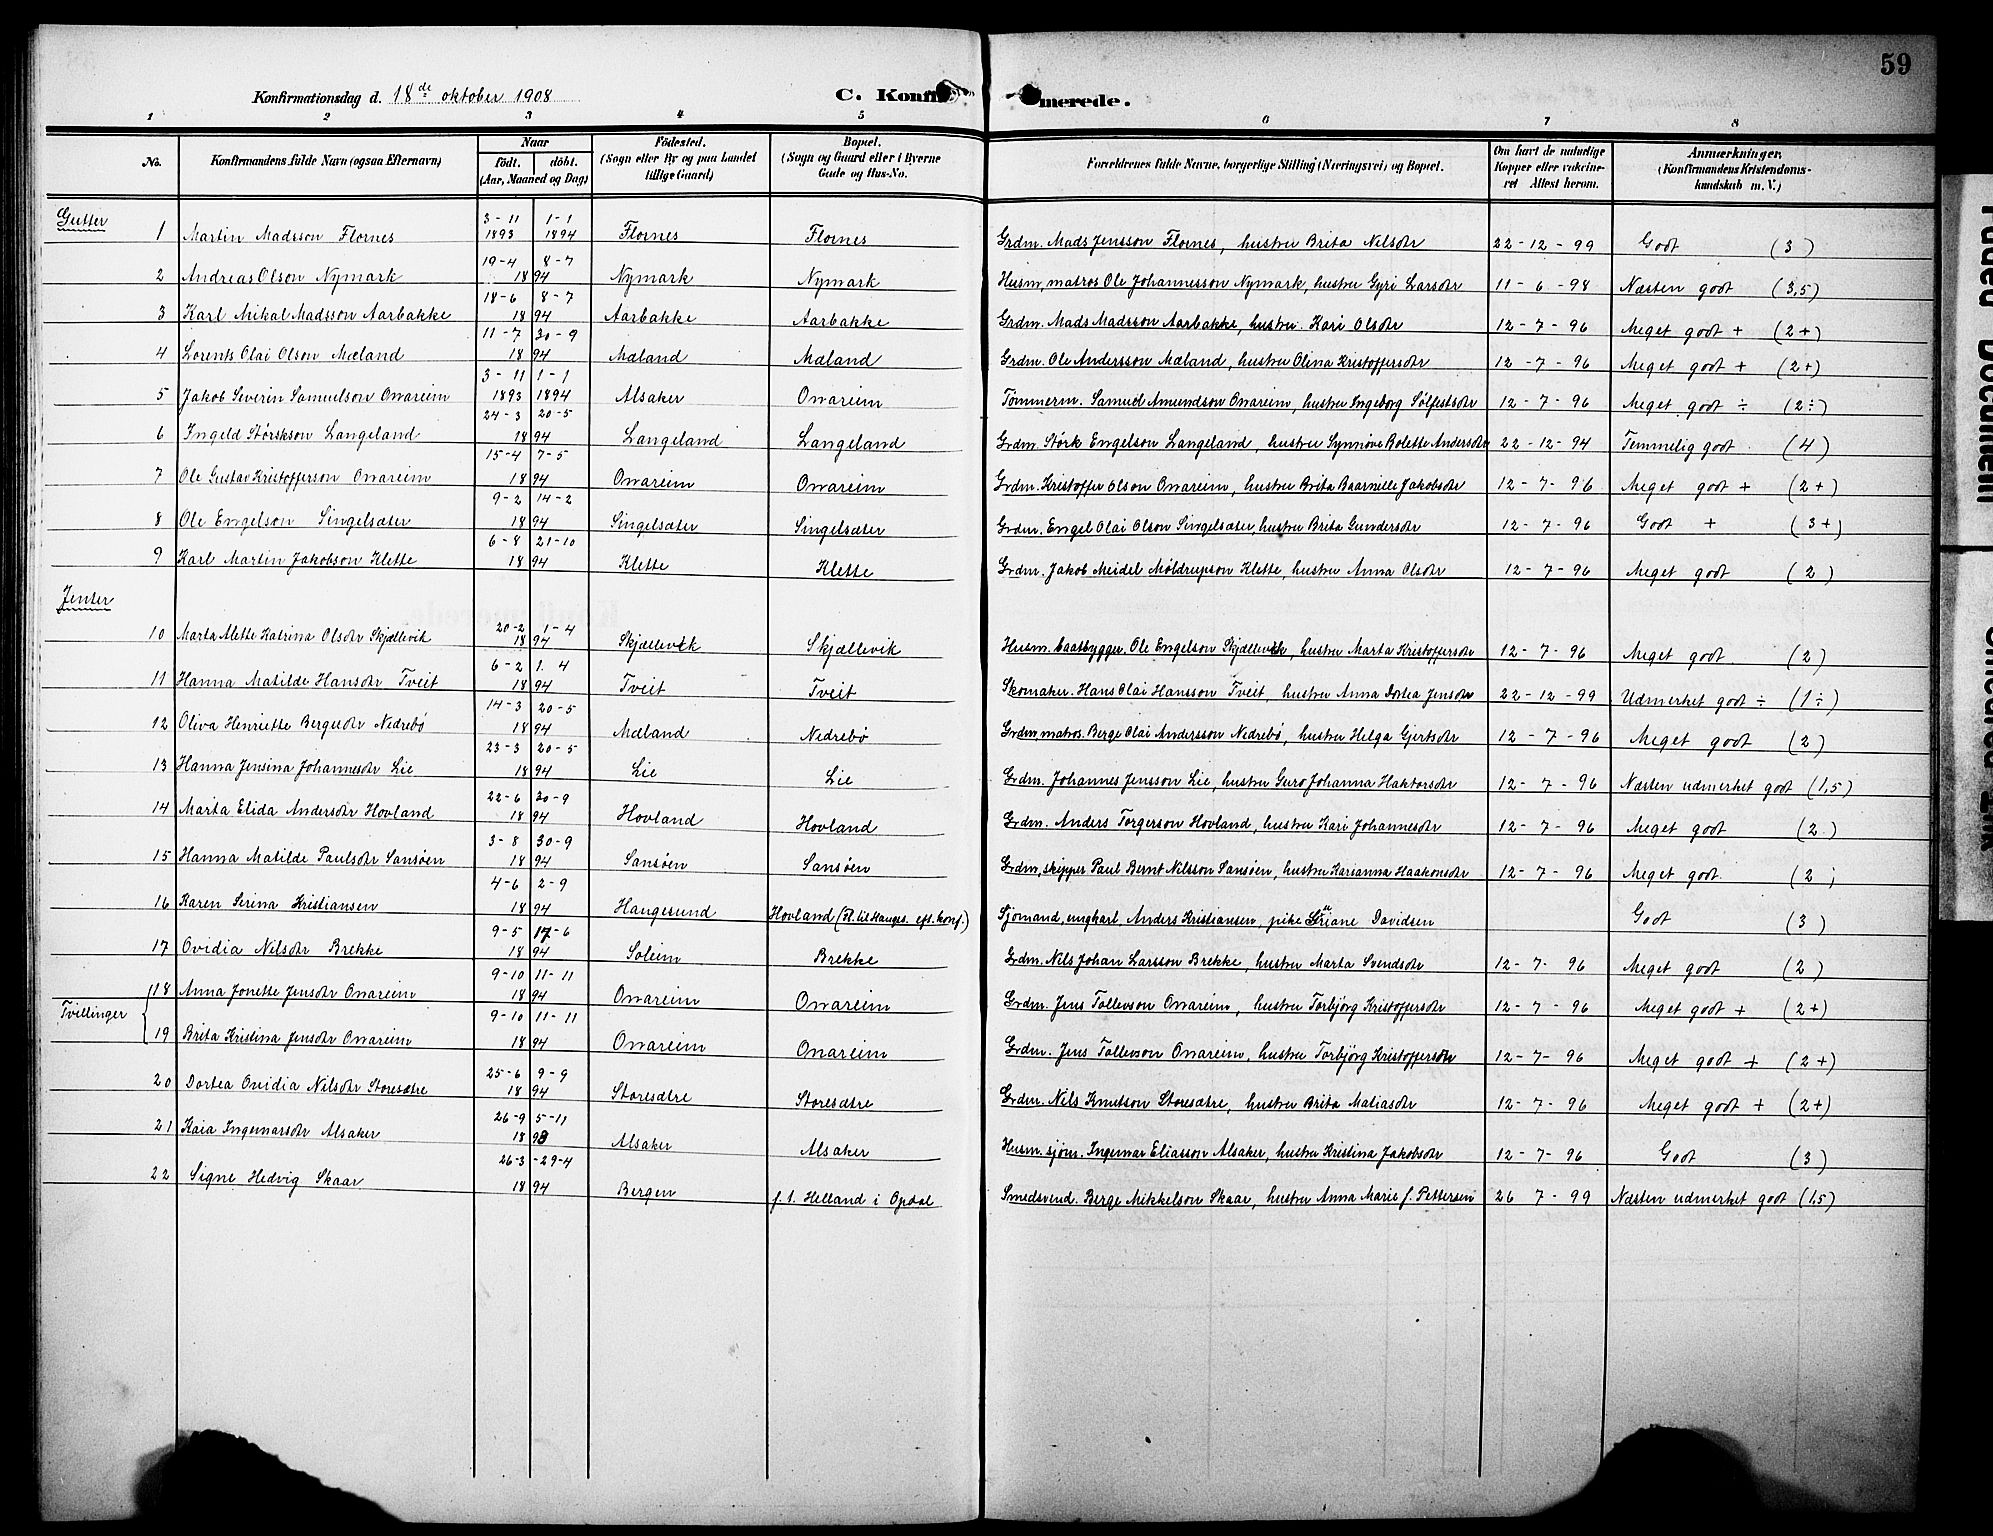 59
Konfirmationsdag d. 18de oktober 1908
C. Konfi merede.
1 2 3 4 5 6 7 8
No. Konfirmandens fulde Navn (ogsaa Efternavn) Naar født. døbt. (Aar, Maaned og Dag) Fødested. (Sogn eller By og paa Landet tillige Gaard) Bopæl. (Sogn og Gaard eller i Byerne Gade og Hus-No. Forældrenes fulde Navne, borgerlige Stilling (Næringsvei) og Bopæl. Om havt de naturlige Kopper eller vaccineret Attest herom. Anmærkninger. (Konfirmandens Kristendomskundskab m. V.)
Gutter
1 Martin Madsson Flornes 3-11 1893 1-1 1894 Flornes Flornes Grdm. Mads Jensson Flornes, hustru Brita Nilsdtr 22-12-99 Godt (3)
2 Andreas Olson Nymark 19-4 8-7 1894 Nymark Nymark Husm, matros Ole Johannesson Nymark, hustru Gyri Larsdtr 11-6-98 Næsten godt (3,5)
3 Karl Mikal Madsson Aarbakke 18-6 8-7 1894 Aarbakke Aarbakke Grdm. Mads Madsson Aarbakke, hustru Kari Olsdtr 12-7-96 Meget godt + (2+)
4 Lorents Olai Olson Mæland 11-7 30-9 1894 Mæland Mæland Grdm. Ole Andersson Mæland, hustru Olina Kristoffersdtr 12-7-96 Meget godt + (2+)
5 Jakob Severin Samuelson Onareim 3-11 1893 1-1 1894 Alsaker Onareim Tømmerm. Samuel Amundson Onareim, hustru Ingeborg Sølfestsdtr 12-7-96 Meget godt ÷ (2÷)
6 Ingeld Størkson Langeland 24-3 20-5 1894 Langeland Langeland Grdm. Størk Engelson Langeland, hustru Synnøve Bolette Andersdtr 22-12-94 Temmelig godt (4)
7 Ole Gustav Kristofferson Onareim 15-4 7-5 1894 Onareim Onareim Grdm. Kristoffer Olson Onareim, hustru Brita Jakobsdtr 12-7-96 Meget godt + (2+)
8 Ole Engelson Singelsæter 9-2 14-2 1894 Singelsæter Singelsæter Grdm. Engel Olai Olson Singelsæter, hustru Brita Gundersdtr 12-7-96 Godt + (3+)
9 Karl Martin Jakobson Klette 6-8 21-10 1894 Klette Klette Grdm. Jakob Meidel Møldrupson Klette, hustru Anna Olsdtr 12-7-96 Meget godt (2)
Jenter
10 Marta Alette Katrina Olsdtr Skjællevik 20-2 1-4 1894 Skjællevik Skjællevik Husm. baatbygger. Ole Engelson Skjællevik, hustru Marta Kristoffersdtr 12-7-96 Meget godt (2)
11 Hanna Matilde Hansdtr Tveit 6-2 1. 4 1894 Tveit Tveit Skomaker. Hans Olai Hansson Tveit, hustru Anna Dortea Jensdtr 22-12-99 Udmerket godt ÷ (1÷)
12 Oliva Henriette Bergesdtr Nedrebø 14-3 20-5 1894 Mæland Nedrebø Grdm, matros. Berge Olai Andersson Nedrebø, hustru Helga Gjertsdtr 12-7-96 Meget godt (2)
13 Hanna Jensina Johannesdtr Lie 23-3 20-5 1894 Lie Lie Grdm. Johannes Jensson Lie, hustru Guro Johanna Haktorsdtr 12-7-96 Næsten udmerket godt (1,5)
14 Marta Elida Andersdtr Hovland 22-6 30-9 1894 Hovland Hovland Grdm. Anders Torgerson Hovland, hustru Kari Johannesdtr 12-7-96 Meget godt (2)
15 Hanna Matilde Paulsdtr Sansøen 3-8 30-9 1894 Sansøen Sansøen Grdm, skipper Paul Bernt Nilsson Sansøen, hustru Karianna Haakonsdtr 12-7-96 Meget godt (2)
16 Karen Serina Kristiansen 4-6 2-9 1894 Haugesund Hovland (fl. til Hauges. eft. konf.) Sjømand, ungkarl, Anders Kristiansen, pike Davidsen Godt (3)
17 Ovidia Nilsdtr Brekke 9-5 17-6 1894 Soleim Brekke Grdm. Nils Johan Larsson Brekke, hustru Marta Svendsdtr 12-7-96 Meget godt (2)
Tvillinger
18 Anna Jonette Jensdtr Onareim 9-10 11-11 1894 Onareim Onareim Grdm. Jens Tollevson Onareim, hustru Torbjørg Kristoffersdtr 12-7-96 Meget godt + (2+)
19 Brita Kristina Jensdtr Onareim 9-10 11-11 1894 Onareim Onareim Grdm. Jens Tollevson Onareim, hustru Torbjørg Kristoffersdtr 12-7-96 Meget godt + (2+)
20 Dortea Ovidia Nilsdtr Storesætre 25-6 9-9 1894 Storesætre Storesætre Grdm. Nils Knutson Storesætre, hustru Brita Matiasdtr 12-7-96 Meget godt + (2+)
21 Kaia Ingemarsdtr Alsaker 26-9 5-11 1893 Alsaker Alsaker Husm. sjøm. Ingemar Eliasson Alsaker, hustru Kristina Jakobsdtr 12-7-96 Godt (3)
22 Signe Hedvig Skaar 26-3 29-4 1894 Bergen f. t. Helland i Opdal Smedsvend. Berge Mikkelson Skaar, hustru Anna Marie f. Pettersen 26 7-99 Næsten udmerket godt (1,5)